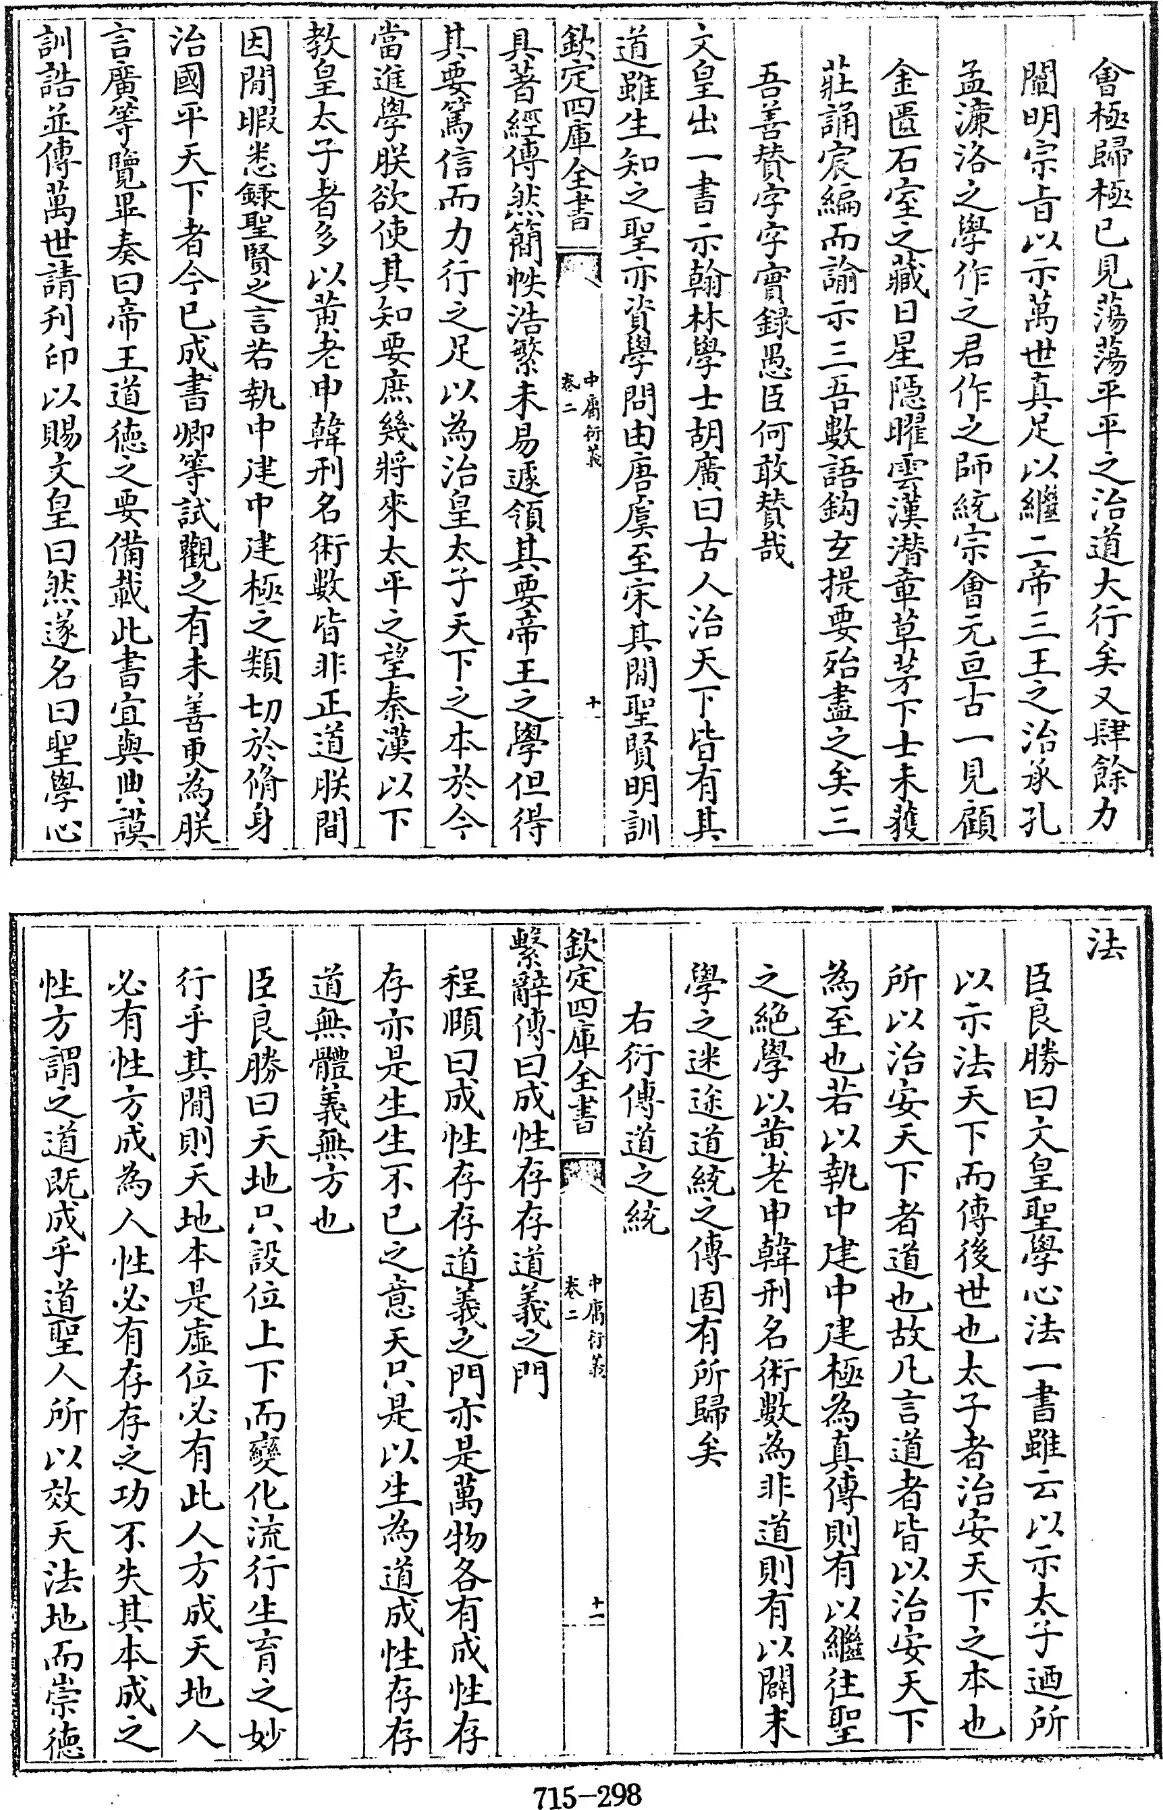 會極歸極已見蕩蕩平平之治道大行矣又肆餘力
闡明宗旨以示萬世真足以繼二帝三王之治承孔
孟濂洛之學作之君作之師統宗會元亘古一見顧
金匱石室之藏日星隱曜雲漢潛章草茅下士未獲
莊誦宸編而諭示三吾數語鈎玄提要殆盡之矣三
吾善贊字字實録愚臣何敢贊哉
文皇出一書示翰林學士胡廣曰古人治天下皆有其
道雖生知之聖亦資學問由唐虞至宋其間聖賢明訓
欽定四庫全書
中庸衍義
卷二
十
具著經傳然簡帙浩繁未易遽領其要帝王之學但得
其要篤信而力行之足以為治皇太子天下之本於今
當進學朕欲使其知要庶幾將來太平之望秦漢以下
教皇太子者多以黄老申韓刑名術數皆非正道朕間
因閒暇悉録聖賢之言若執中建中建極之類切於脩身
治國平天下者今已成書卿等試觀之有未善更為朕
言廣等覽畢奏曰帝王道徳之要備載此書宜與典謨
訓誥並傳萬世請刋印以賜文皇曰然遂名曰聖學心
法
臣良勝曰文皇聖學心法一書雖云以示太子廼所
以示法天下而傳後世也太子者治安天下之本也
所以治安天下者道也故凡言道者皆以治安天下
為至也若以執中建中建極為真傳則有以繼往聖
之絶學以黄老申韓刑名術數為非道則有以闢末
學之迷途道統之傳固有所歸矣
右衍傳道之統
欽定四庫全書
中庸衍義
卷二
十一
繫辭傳曰成性存存道義之門
程頤曰成性存存道義之門亦是萬物各有成性存
存亦是生生不已之意天只是以生為道成性存存
道無體義無方也
臣良勝曰天地只設位上下而變化流行生育之妙
行乎其間則天地本是虛位必有此人方成天地人
必有性方成為人性必有存存之功不失其本成之
性方謂之道既成乎道聖人所以效天法地而崇徳
715-298